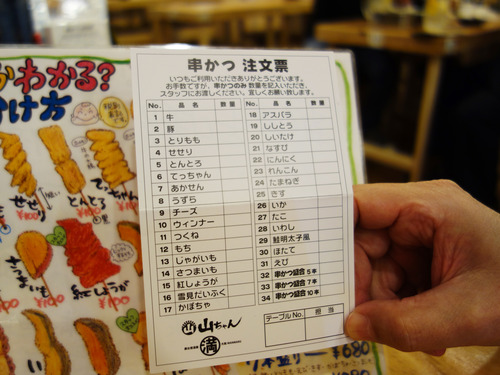 串かつ 注文票
いつもご利用いただきありがとうございます。
お手数ですが、串かつのみ 数量を記入いただき、
スタッフにお渡しください。宜しくお願い致します。
No. 品 名 数 量
1 牛
2 豚
3 とりもも
4 せせり
5 とんとろ
6 てっちゃん
7 あかせん
8 うずら
9 チーズ
10 ウィンナー
11 つくね
12 もち
13 じゃがいも
14 さつまいも
15 紅しょうが
16 雪見だいふく
17 かぼちゃ
No. 品 名 数 量
18 アスパラ
19 ししとう
20 しいたけ
21 なすび
22 にんにく
23 れんこん
24 たまねぎ
25 きす
26 いか
27 たこ
28 いわし
29 鮭明太子風
30 ほたて
31 えび
32 串かつ盛合 5本
33 串かつ盛合 7本
34 串かつ盛合 10本
山ちゃん
満
テーブルNo. 担 当
わかる?
け方
せせり
¥100
とんとろ
さつまいも
紅しょうが
¥680